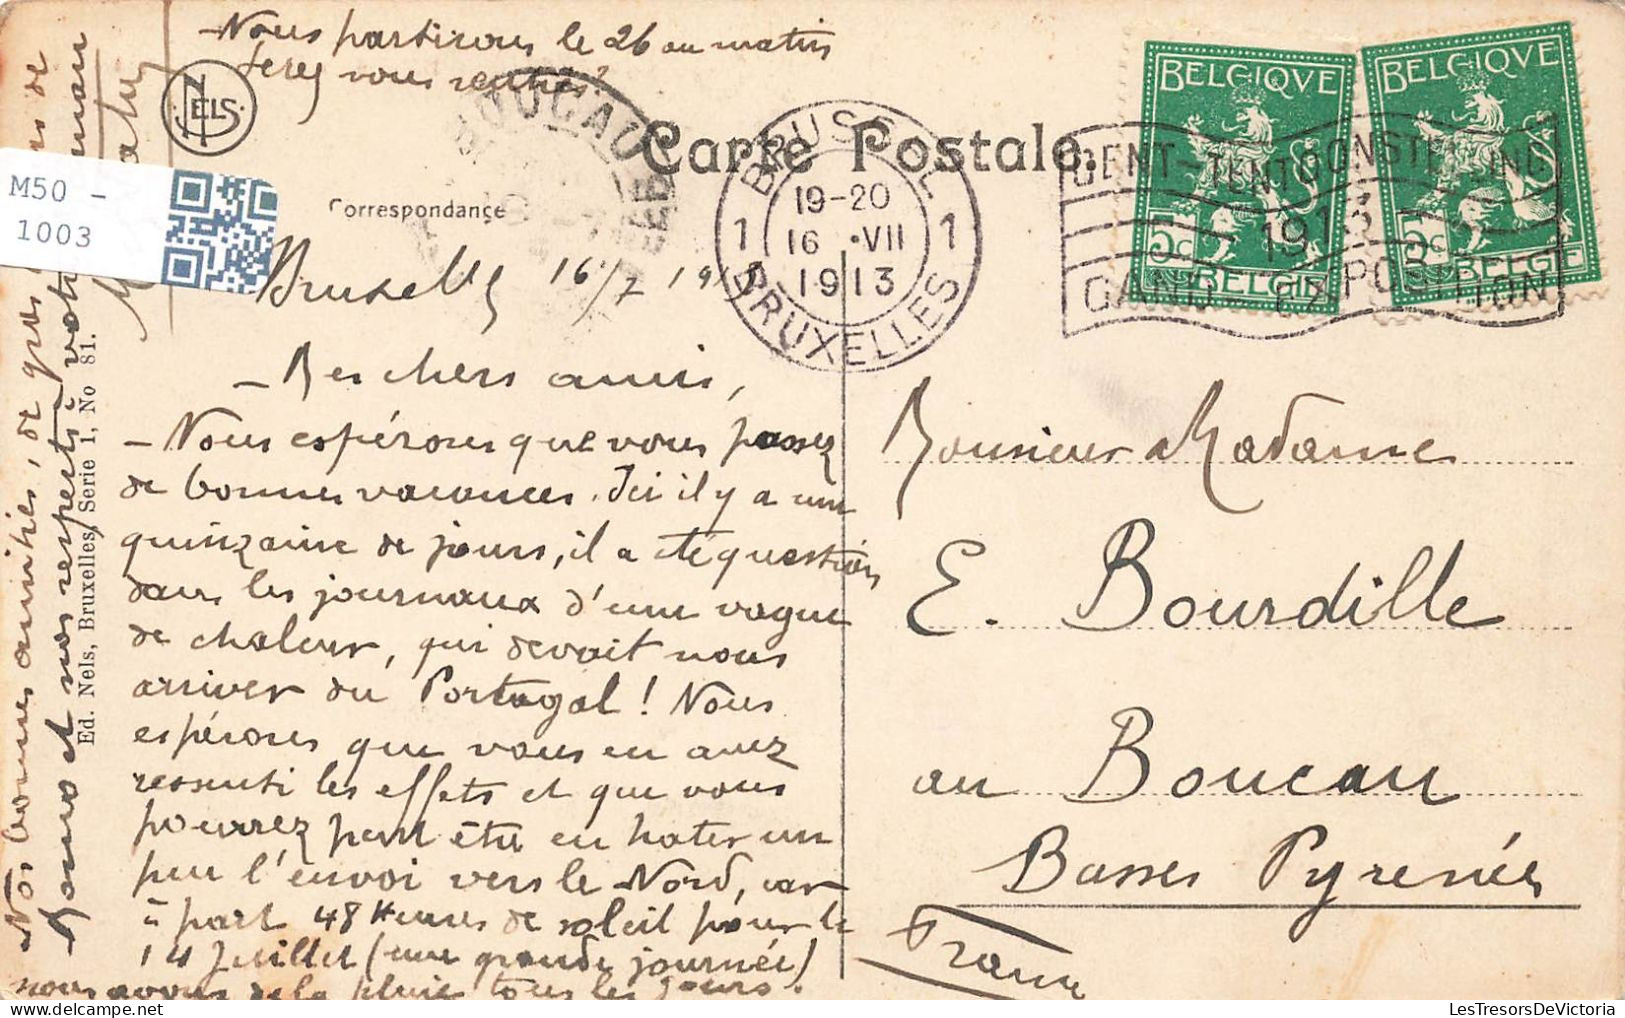 - Nous partirons le 26 au matin
serez vous rentrés?
NELS
Carte Postale.
Correspondance
BOUCAU
BRUSSEL
1 19-20 1
16 •VII
1913
BRUXELLES
BELGIQVE
5c 5c
BELGIË
BELGIQVE
5c 5c
BELGIË
GENT-TENTOONSTELLING
1913
GAND-EXPOSITION
M50 -
1003
Bruxelles 16/7 1913
- Mes chers amis,
- Nous espérons que vous passez
de bonnes vacances. Ici il y a une
quinzaine de jours, il a été question
dans les journaux d'une vague
de chaleur, qui devait nous
arriver du Portugal! Nous
espérons que vous en avez
ressenti les effets et que vous
pourrez peut être en hater un
peu l'envoi vers le Nord, car
à part 48 Heures de soleil pour le
14 Juillet (une grande journée)
nous avons de la pluie tous les jours.
Nos bonnes amitiés, de gros de
Momo et nos respects à votre maman
Ed. Nels, Bruxelles, Serie 1, No 81.
Monsieur Madame
E. Bourdille
au Boucau
Basses Pyrenées
France
LesTresorsDeVictoria.com